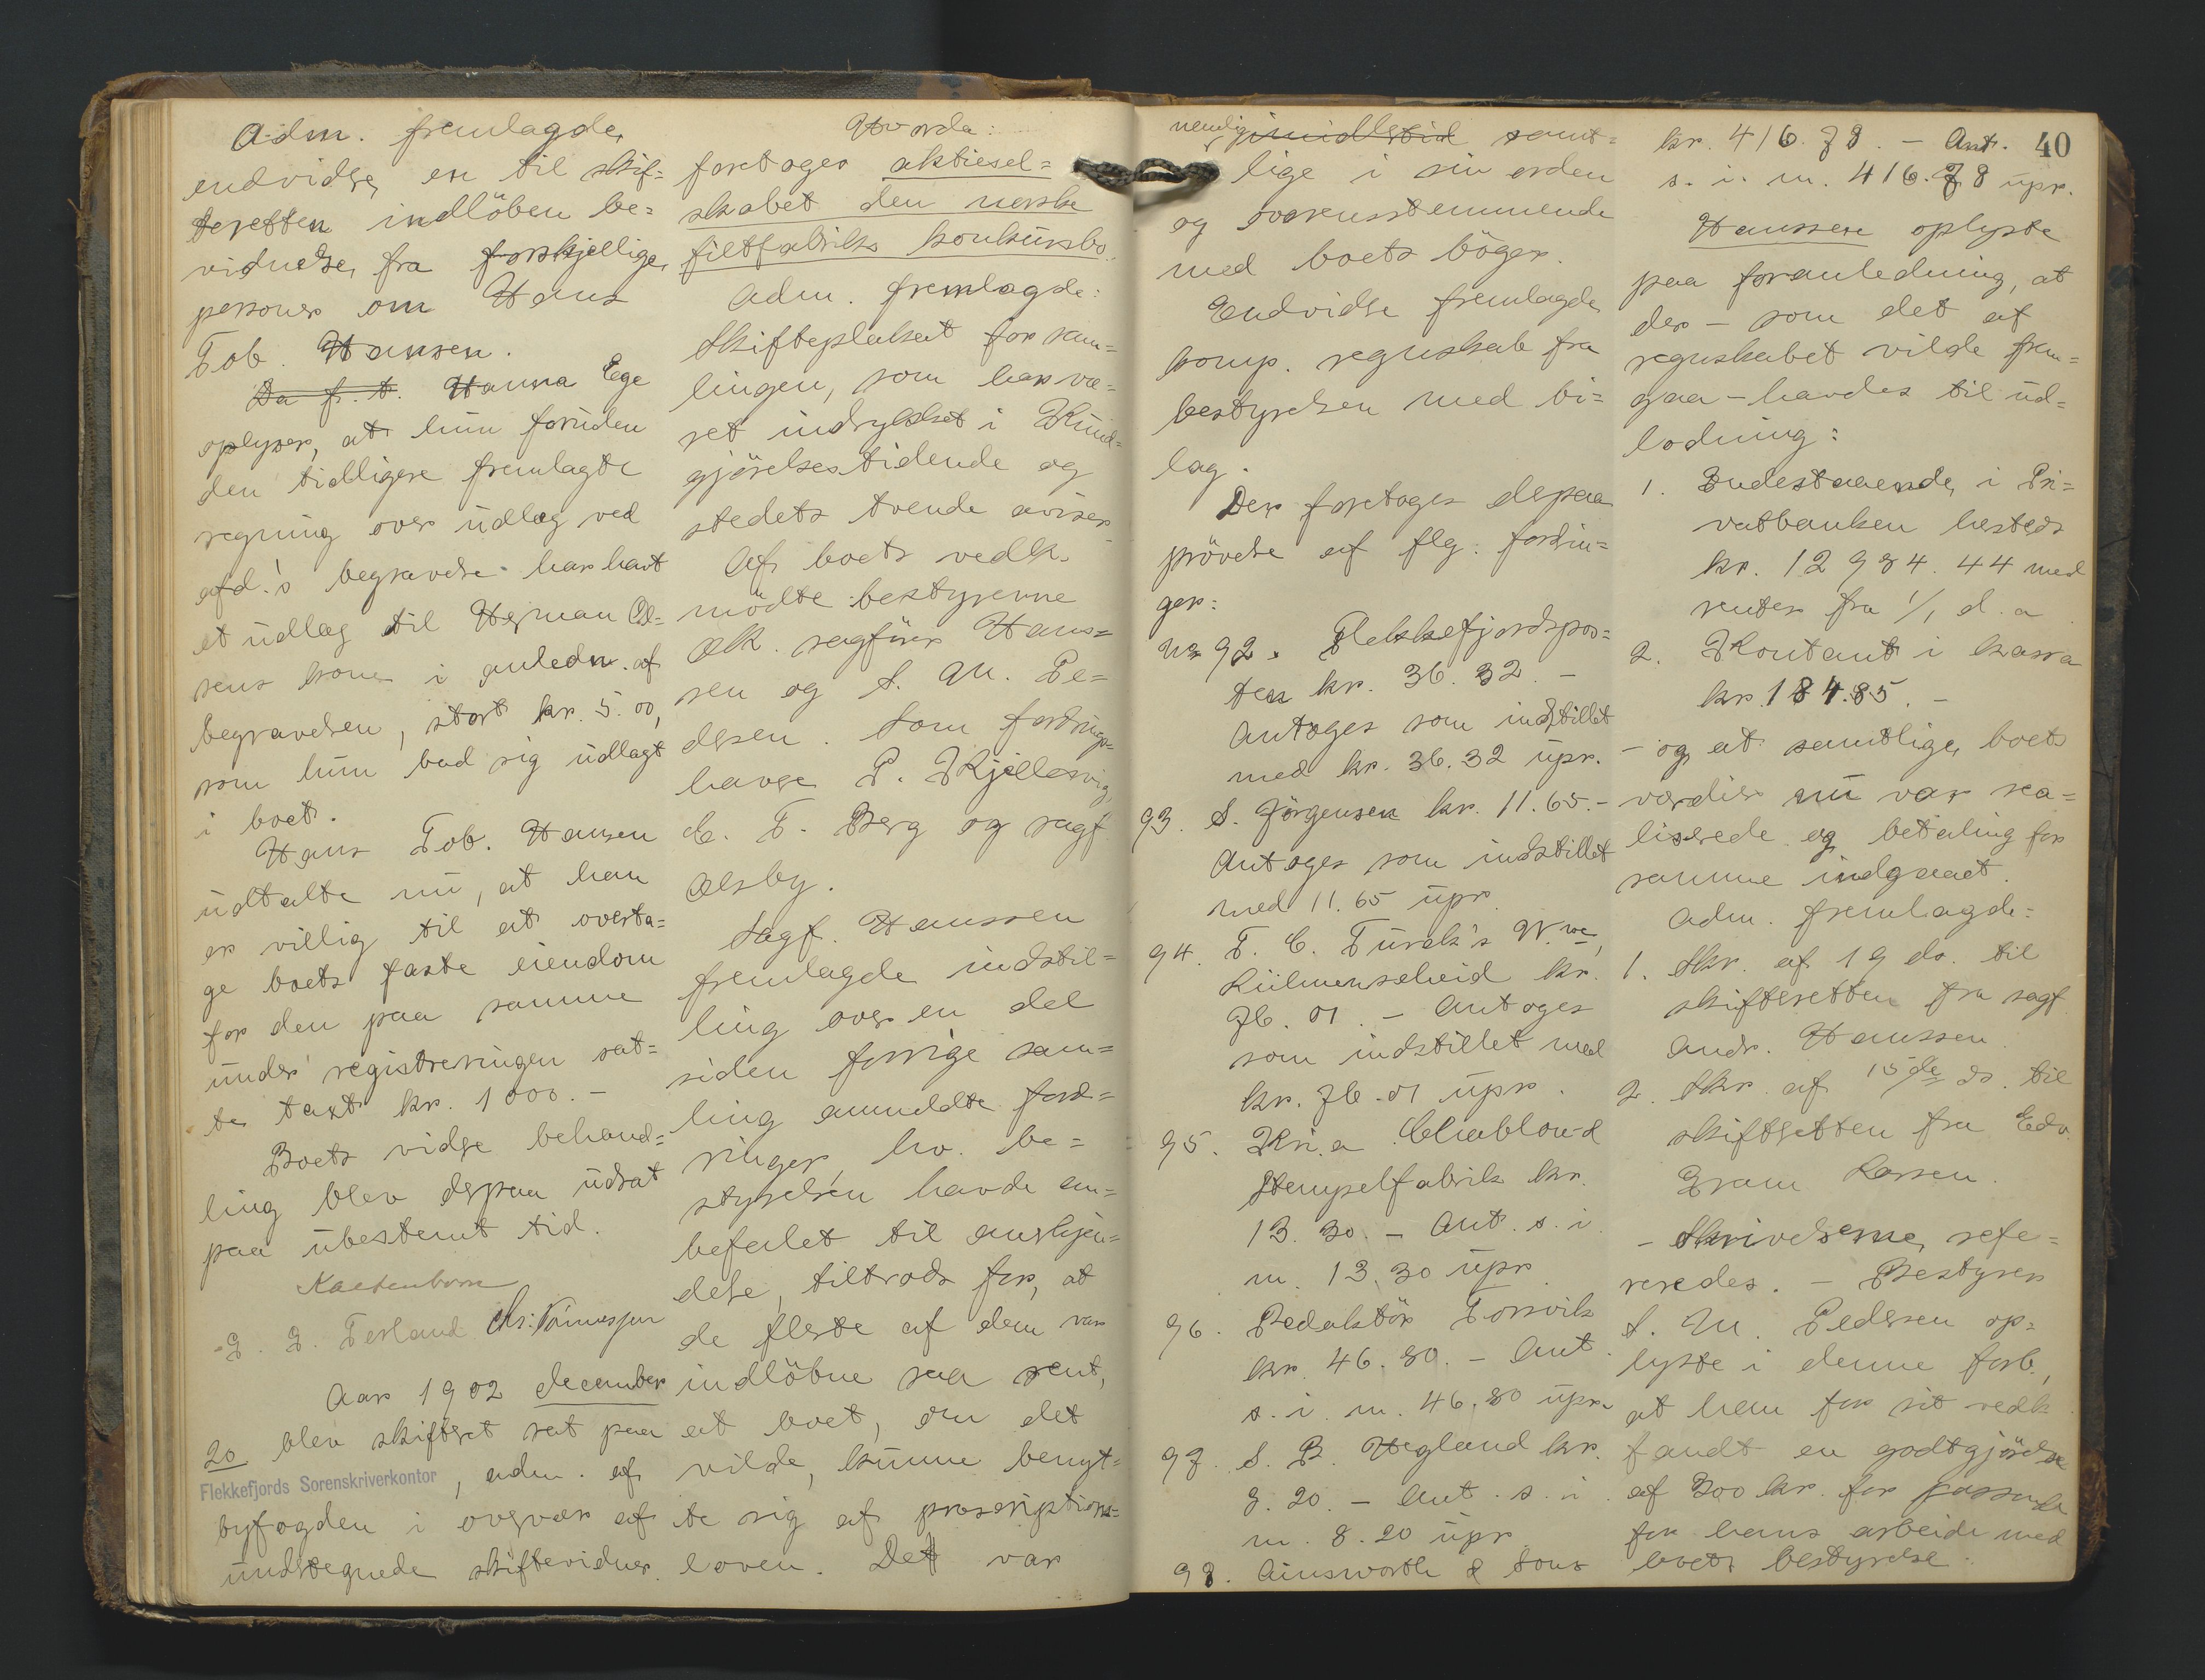 Adm. fremlagde
endvidre en til skif=
teretten indlöben be=
vidnelse fra forskjellige
personer om Hans
Tob. Hansen.
Da f. t. Hanna Ege
oplyser, at hun foruden
den tidligere fremlagte
regning over udlæg ved
afd.'s begravelse har havt
et udlæg til Herman Ol=
sens kone i anledn. af
begravelsen, stort kr. 5.00,
som hun bad sig udlagt
i boet.
Hans Tob. Hansen
udtalte nu, at han
er villig til at overta=
ge boets faste eiendom
for den paa samme
under registreringen sat=
te taxt kr. 1000.-
Boets vidre behand=
ling blev derpaa udsat
paa ubestemt tid.
E. E. Tesland Chr: Tönnessen
Aar 1902 december
20 blev skifteret sat paa
Flekkefjords Sorenskriverkontor, adm. af
byfogden i overvær af
undertegnede skiftevidner.
Hvorda:
foretoges aktiesel=
skabet den norske
filtfabriks konkursbo.
Adm. fremlagde:
Skifteplakat for sam=
lingen, som har væ=
ret indrykket i Kund=
gjörelsestidende og
stedets tvende aviser.
Af boets vedk.
mödte bestyrerne
OR. sagförer Hans=
sen og S. M. Pe=
dersen. Som fordrings=
havere P. Kjellesvig,
C. F. Berg og sagf.
Olsby.
Sagf. Hanssen
fremlagde indstil=
ling over en del
siden forrige sam=
ling anmeldte ford=
ringer, hv. be=
styrelsen havde an=
befalet til anerkjen=
delse, tiltrods for, at
de fleste af dem var
indlöbne saa sent,
at boet, om det
vilde, kunne benyt=
te sig af proscriptions=
loven. Det var
nemlig imidlertid samt=
lige i sin orden
og overensstemmende
med boets böger.
Endvidre fremlagde
komp. regnskab fra
bestyrelsen med bi=
lag.
Der foretoges derpaa
prövelse af flg. fordrin=
ger:
No 92. Flekkefjordspos=
ten kr. 36.32.-
Antoges som indstillet
med kr. 36.32 upr.
93. S. Jörgensen kr. 11.65.-
Antoges som indstillet
med 11.65 upr.
94. F. C. Türck's Wwe,
Lülmenscheid kr.
76.01.- Antoges
som indstillet med
kr. 76.01 upr.
95. Kr.a Chablon- &
Stempelfabrik kr.
13.30.- Ant. s. i.
m. 13.30 upr.
96. Redaktör Torsvik
kr. 46.80.- Ant.
s. i. m. 46.80 upr.
97. S. B. Hegland kr.
8.20.- Ant. s. i.
m. 8.20 upr.
98. Ainsworth & Sons
kr. 416.78.- Ant.
40
s. i. m. 416.78 upr.
Hanssen oplyste
paa foranledning, at
der - som det af
regnskabet vilde frem=
gaa - havdes til ud=
lodning:
1. Indestaaende i Pri=
vatbanken hersteds
kr. 12984.44 med
renter fra 1/1 d. a.
2. Kontant i kassa
kr. 184.85.-
- og at samtlige boets
værdier nu var rea=
liserede og betaling for
samme indgaaet.
Adm. fremlagde:
1. Skr. af 19 ds. til
skifteretten fra sagf.
Andr. Hanssen.
2. Skr. af 15de ds. til
skifteretten fra Edv.
Gram Larsen.
- Skrivelserne refe=
reredes. - Bestyrer
S. M. Pedersen op=
lyste i denne forb.,
at han for sit vedk.
fandt en godtgjörelse
af 300 kr. for passende
for hans arbeide med
boets bestyrelse.